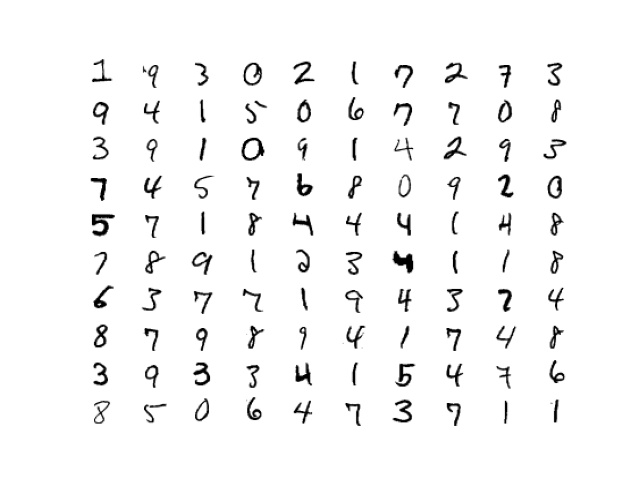 1 9 3 0 2 1 7 2 7 3
9 4 1 5 0 6 7 7 0 8
3 9 1 0 9 1 4 2 9 3
7 4 5 7 6 8 0 9 2 0
5 7 1 8 4 4 4 1 4 8
7 8 9 1 2 3 4 1 1 8
6 3 7 7 1 9 4 3 2 4
8 7 9 8 9 4 1 7 4 8
3 9 3 3 4 1 5 4 7 6
8 5 0 6 4 7 3 7 1 1